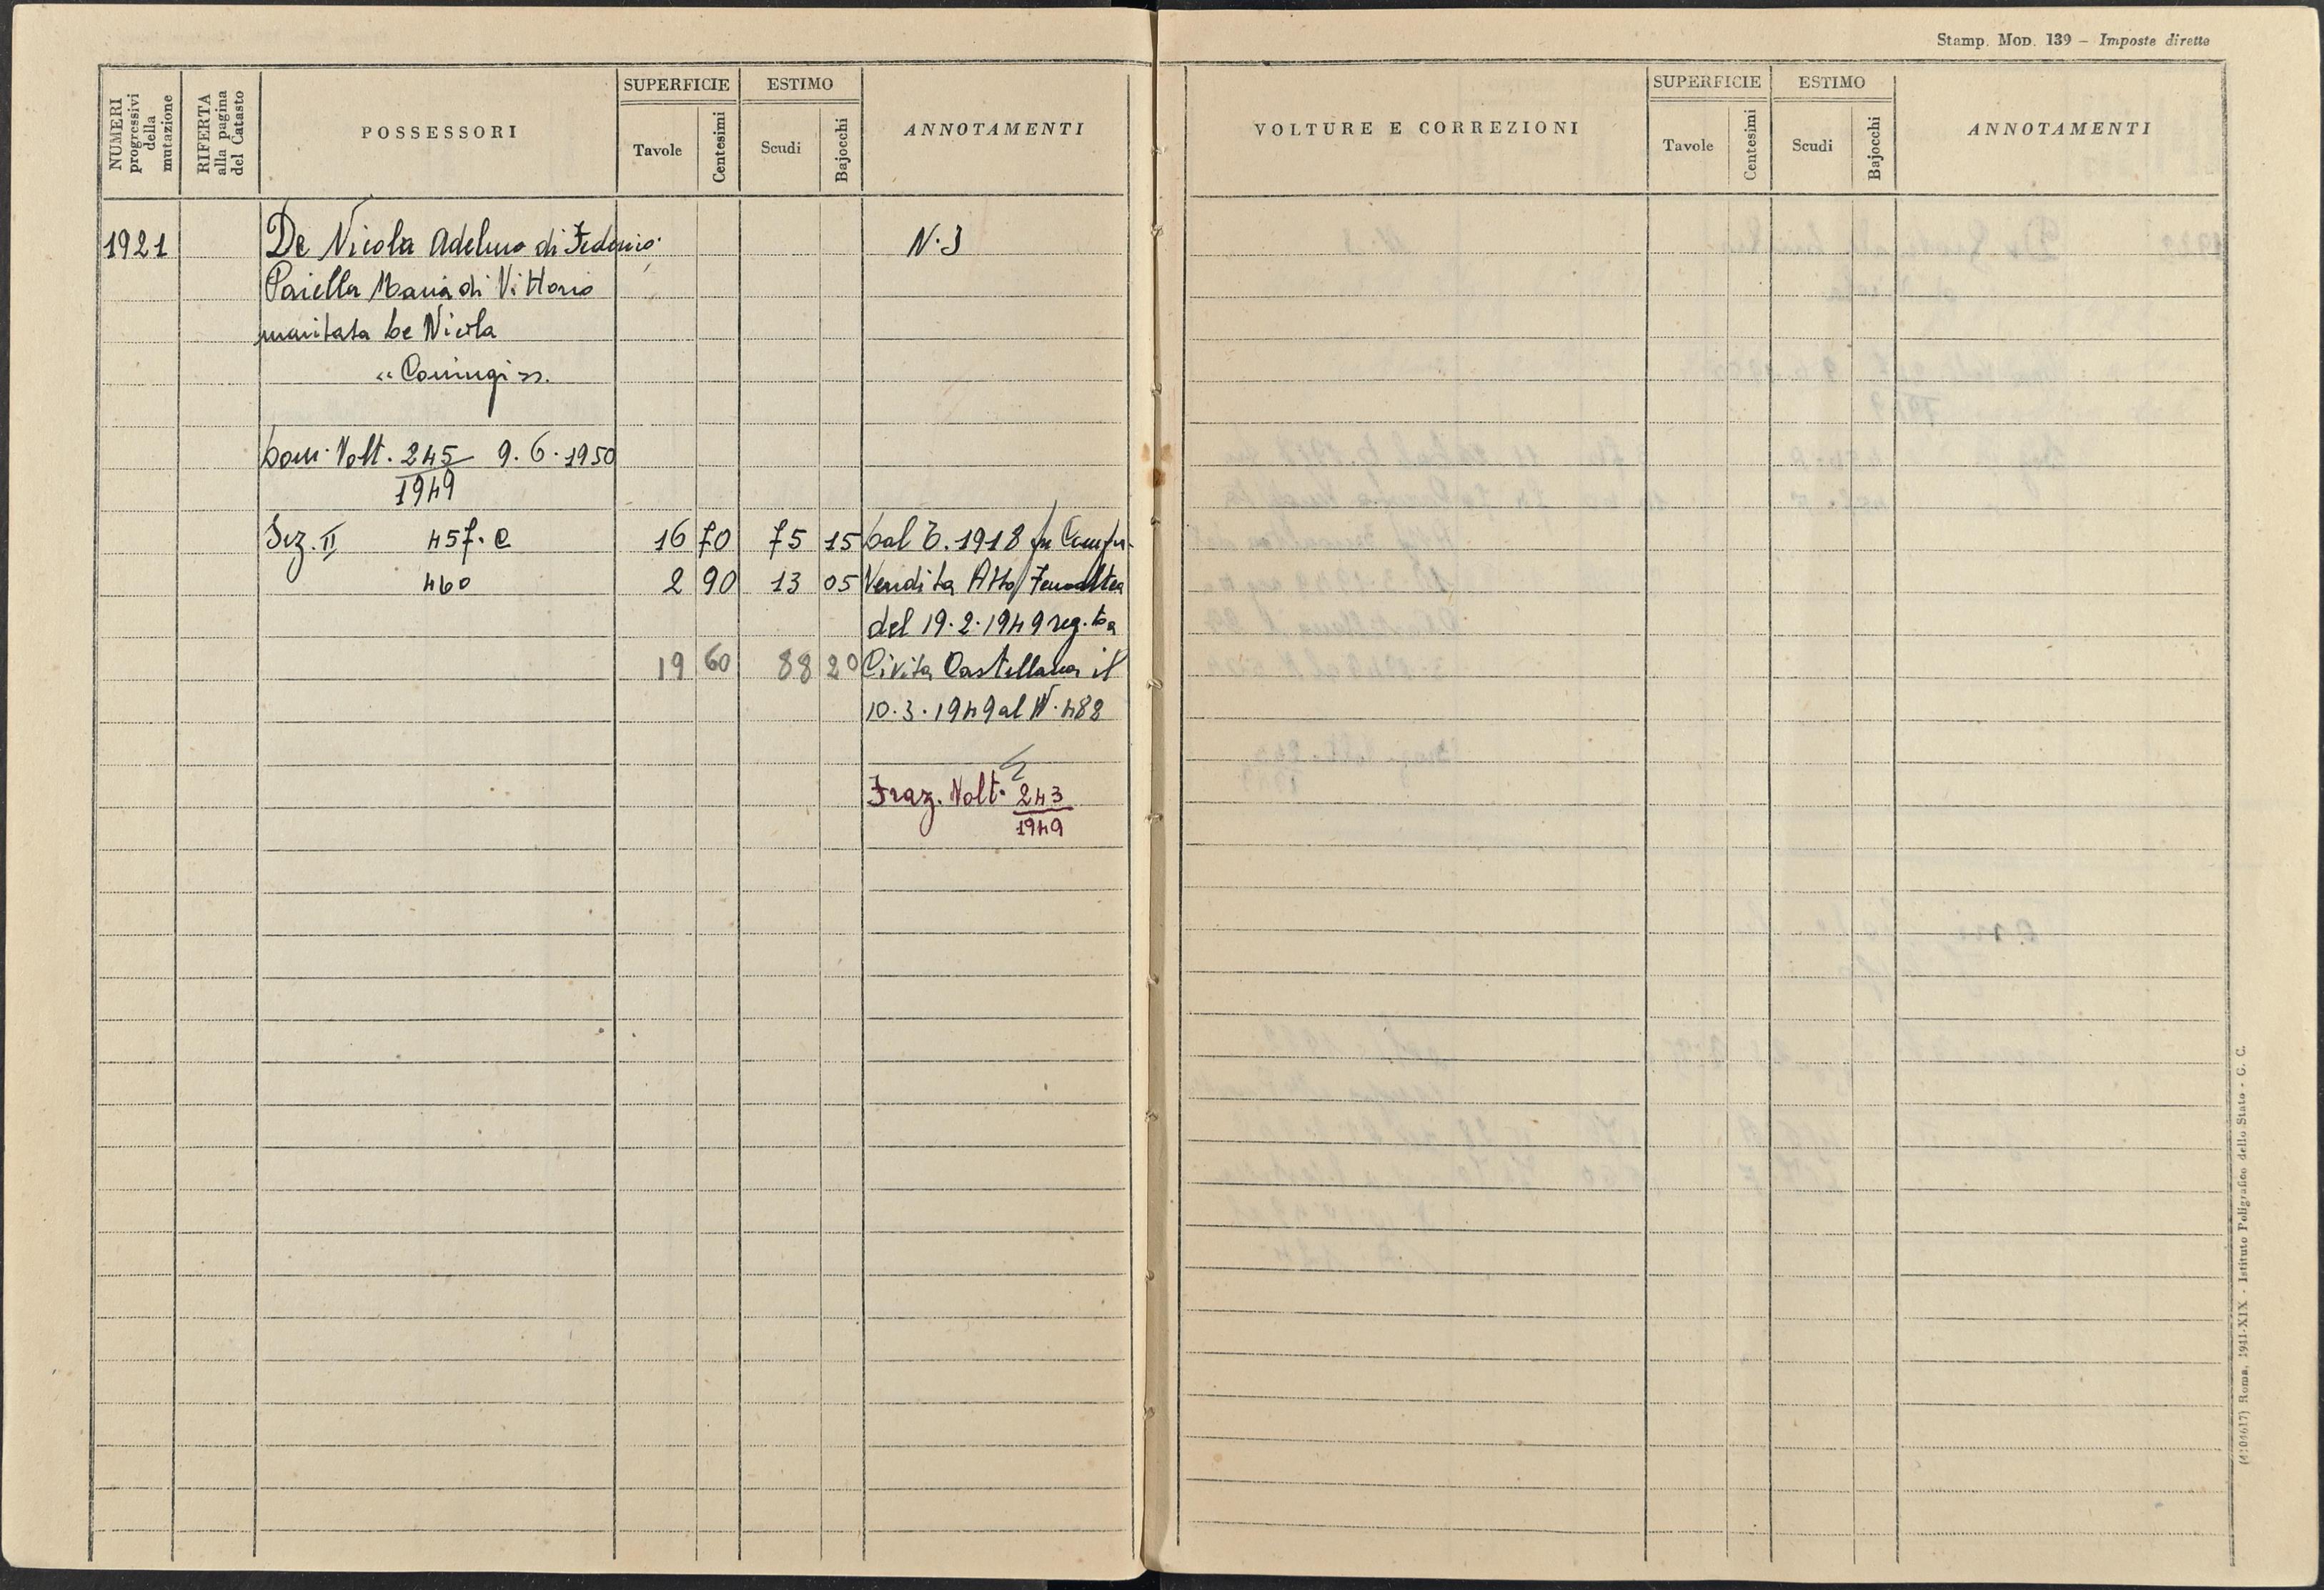 Stamp. Mod. 139 – Imposte dirette
NUMERI progressivi della mutazione
RIFERTA alla pagina del Catasto
POSSESSORI
SUPERFICIE
Tavole
Centesimi
ESTIMO
Scudi
Bajocchi
ANNOTAMENTI
VOLTURE E CORREZIONI
SUPERFICIE
Tavole
Centesimi
ESTIMO
Scudi
Bajocchi
ANNOTAMENTI
1921 De Nicola Adelmo di Federico N. 3
Paiella Maria di Vittorio
maritata De Nicola
"Coniugi".
Dom. Volt. 245/1949 9.6.1950
Sez. II 457. C 16 70 75 15 Dal C. 1918 per Comp.
460 2 90 13 05 Vendita Atto Fenoaltea
del 19.2.1949 reg. to a
19 60 88 20 Civita Castellana il
10.3.1949 al N. 488
Fraz. Volt. 243/1949
Roma, 1941-XIX - Istituto Poligrafico dello Stato - G. C.